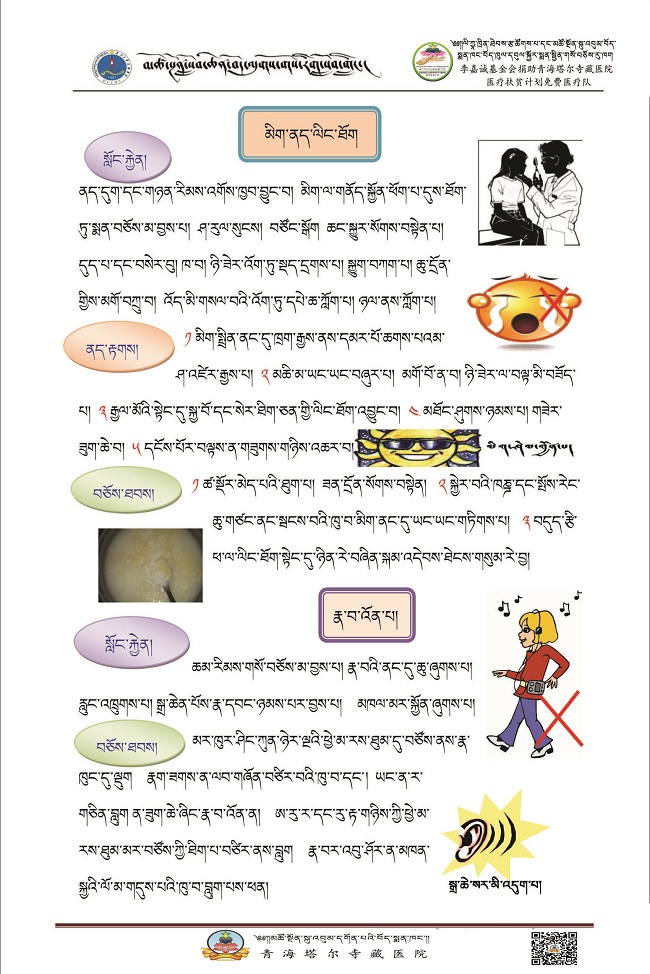 ༄༅།ལི་ཀྭ་ཁྲིན་ཐེབས་རྩ་ཚོགས་པ་དང་མཚོ་སྔོན་སྐུ་འབུམ་བོད་
སྨན་ཁང་བོད་ཁུལ་དབུལ་སྐྱོར་སྨན་སྦྱིན་གསོ་བཅོས་རུ་ཁག
李嘉诚基金会捐助青海塔尔寺藏医院
医疗扶贫计划免费医疗队
མིག་ནད་ལིང་ཐོག
སློང་རྐྱེན།
ནད་དུག་དང་གཉན་རིམས་འགོས་ཁྱབ་བྱུང་བ། མིག་ལ་གནོད་སྐྱོན་ཕོག་པ་དུས་ཐོག་
ཏུ་སྨན་བཅོས་མ་བྱས་པ། ཤ་རུལ་སུངས། བཙོང་སྒོག ཆང་སྐྱུར་སོགས་བསྟེན་པ།
དུད་པ་དང་བསེར་བུ། ཁ་བ། ཉི་ཟེར་འོག་ཏུ་སྡད་དྲགས་པ། སྐྱུག་བཀག་པ། ཆུ་དྲོན་
གྱིས་མགོ་བཀྲུ་བ། འོད་མི་གསལ་བའི་འོག་ཏུ་དཔེ་ཆ་ཀློག་པ། ཉལ་ནས་ཀློག་པ།
ནད་རྟགས།
༡ མིག་སྤྲིན་ནང་དུ་ཁྲག་རྒྱས་ནས་དམར་པོ་ཆགས་པའམ་
ཤ་འཛེར་རྒྱས་པ། ༢ མཆི་མ་ཡང་ཡང་བཞུར་པ། མགོ་བོ་ན་བ། ཉི་ཟེར་ལ་བལྟ་མི་བཟོད་
པ། ༣ རྒྱལ་མོའི་སྟེང་དུ་སྐྱ་བོ་དང་སེར་ཐིག་ཅན་གྱི་ལིང་ཐོག་འབྱུང་བ། ༤ མཐོང་ཤུགས་ཉམས་པ། གཟེར་
ཟུག་ཆེ་བ། ༥ དངོས་པོར་བལྟས་ན་གཟུགས་གཉིས་འཆར་བ།
བཅོས་ཐབས།
༡ ཚ་སྡོར་མེད་པའི་ཐུག་པ། ཟན་དྲོན་སོགས་བསྟེན། ༢ སྐྱེར་བའི་ཁཎྜ་དང་སྤོས་རེང་
ཆུ་གཙང་ནང་སྦངས་བའི་ཁུ་བ་མིག་ནང་དུ་ཡང་ཡང་གཏིགས་པ། ༣ བདུད་རྩི་
ཕ་ལ་ལིང་ཐོག་སྟེང་དུ་ཉིན་རེ་བཞིན་སྐམ་འདེབས་ཐེངས་གསུམ་རེ་བྱ།
རྣ་བ་འོན་པ།
སློང་རྐྱེན།
ཆམ་རིམས་གསོ་བཅོས་མ་བྱས་པ། རྣ་བའི་ནང་དུ་ཆུ་ཞུགས་པ།
རླུང་འཁྲུགས་པ། སྒྲ་ཆེན་པོས་རྣ་དབང་ཉམས་པར་བྱས་པ། མཁལ་མར་སྐྱོན་ཞུགས་པ།
བཅོས་ཐབས།
མར་ཁུར་ཤིང་ཀུན་ཉེར་ལྔའི་ཕྱེ་མ་རས་ཐུམ་དུ་བཙོས་ནས་རྣ་
ཁུང་དུ་ལྡུག རྣག་ཟགས་ན་ལབ་གཞོན་བཙིར་བའི་ཁུ་བ་དང་། ཡང་ན་ར་
གཅིན་བླུག ན་ཟུག་ཆེ་ཞིང་རྣ་བ་འོན་ན། ཨ་རུ་ར་དང་རུ་རྟ་གཉིས་ཀྱི་ཕྱེ་མ་
རས་ཐུམ་མར་བཙོས་ཀྱི་ཐིག་པ་བཙིར་ནས་བླུག རྣ་བར་འབུ་ཤོར་ན་མཁན་
སྐྱའི་ལོ་མ་གདུས་པའི་ཁུ་བ་བླུག་པས་ཕན།
སྒྲ་ཆེ་སར་མི་འདུག་པ།
༄༅།།མཚོ་སྔོན་སྐུ་འབུམ་དགོན་པའི་བོད་སྨན་ཁང་།།
青海塔尔寺藏医院